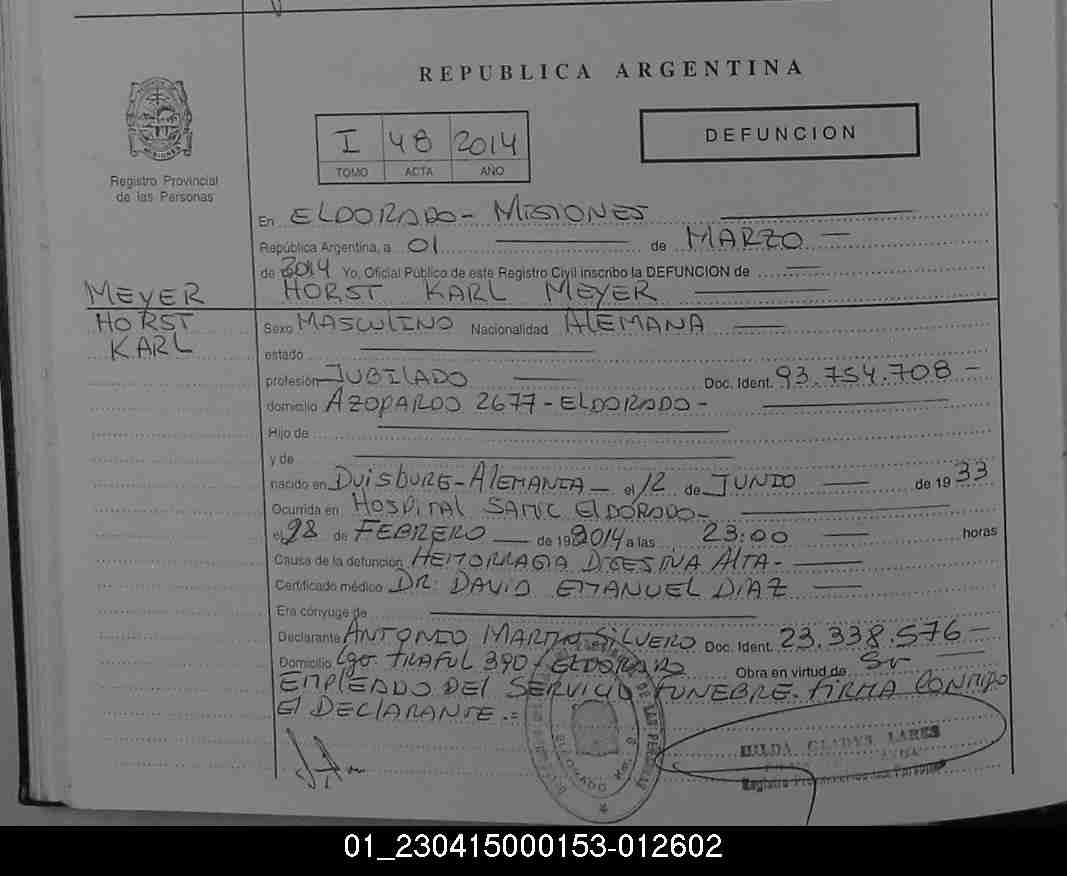 REPUBLICA ARGENTINA
I 48 2014
TOMO ACTA AÑO
DEFUNCION
MISIONES
Registro Provincial
de las Personas
En ELDORADO - MISIONES
República Argentina, a 01 de MARZO
de 2014 Yo, Oficial Público de este Registro Civil inscribo la DEFUNCION de
HORST KARL MEYER
MEYER
HORST
KARL
Sexo MASCULINO Nacionalidad ALEMANA
estado
profesión JUBILADO Doc. Ident. 93.754.708 -
domicilio AZOPARDO 2677 - ELDORADO -
Hijo de
y de
nacido en DUISBURG - ALEMANIA - el 12 de JUNIO de 19 33
Ocurrida en HOSPITAL SAMIC ELDORADO -
el 28 de FEBRERO de 19 2014 a las 23:00 horas
Causa de la defunción HEMORRAGIA DIGESTIVA ALTA -
Certificado médico DR. DAVID EMANUEL DIAZ
Era cónyuge de
Declarante ANTONIO MARTIN SILVERO Doc. Ident. 23.338.576 -
Domicilio Lgo. TRAFUL 390 - ELDORADO Obra en virtud de Sr
EMPLEADO DEL SERVICIO FUNEBRE. FIRMA CONMIGO
EL DECLARANTE.=
HILDA GLADYS LARES
Registro Provincial de las Personas
ELDORADO
01_230415000153-012602